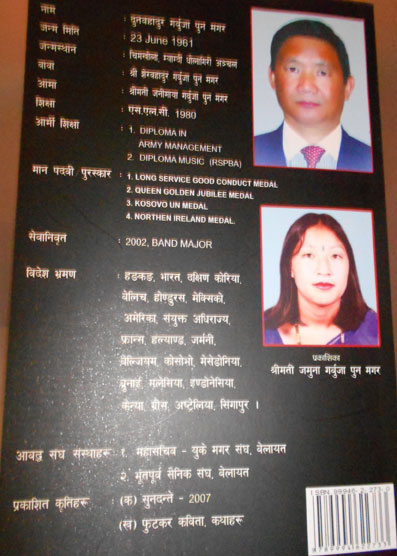 नाम : दुतबहादुर गर्बुजा पुन मगर
जन्म मिति : 23 June 1961
जन्मस्थान : चिमखोला, म्याग्दी धौलागिरी अञ्चल
बाबा : श्री शेरबहादुर गर्बुजा पुन मगर
आमा : श्रीमती जनीमाया गर्बुजा पुन मगर
शिक्षा : एस.एल.सी. 1980
आर्मी शिक्षा : 1. DIPLOMA IN
ARMY MANAGEMENT
2. DIPLOMA MUSIC (RSPBA)
मान पदवी पुरस्कार : 1. LONG SERVICE GOOD CONDUCT MEDAL
2. QUEEN GOLDEN JUBILEE MEDAL
3. KOSOVO UN MEDAL
4. NORTHEN IRELAND MEDAL.
सेवानिवृत : 2002, BAND MAJOR
विदेश भ्रमण : हङकङ, भारत, दक्षिण कोरिया,
बेलिच, होण्डुरस, मेक्सिको,
अमेरिका, संयुक्त अधिराज्य,
फ्रान्स, हल्याण्ड, जर्मनी,
बेल्जियम, कोसोभो, मेसेडोनिया,
ब्रुनाई, मलेसिया, इण्डोनेसिया,
केन्या, ग्रीस, अष्ट्रेलिया, सिंगापुर ।
प्रकाशिका
श्रीमती जमुना गर्बुजा पुन मगर
आबद्ध संघ संस्थाहरू : १. महासचिव - युके मगर संघ, बेलायत
२. भूतपूर्व सैनिक संघ, बेलायत
प्रकाशित कृतिहरू : (क) सुनदन्ते - 2007
(ख) फुटकर कविता, कथाहरू
ISBN